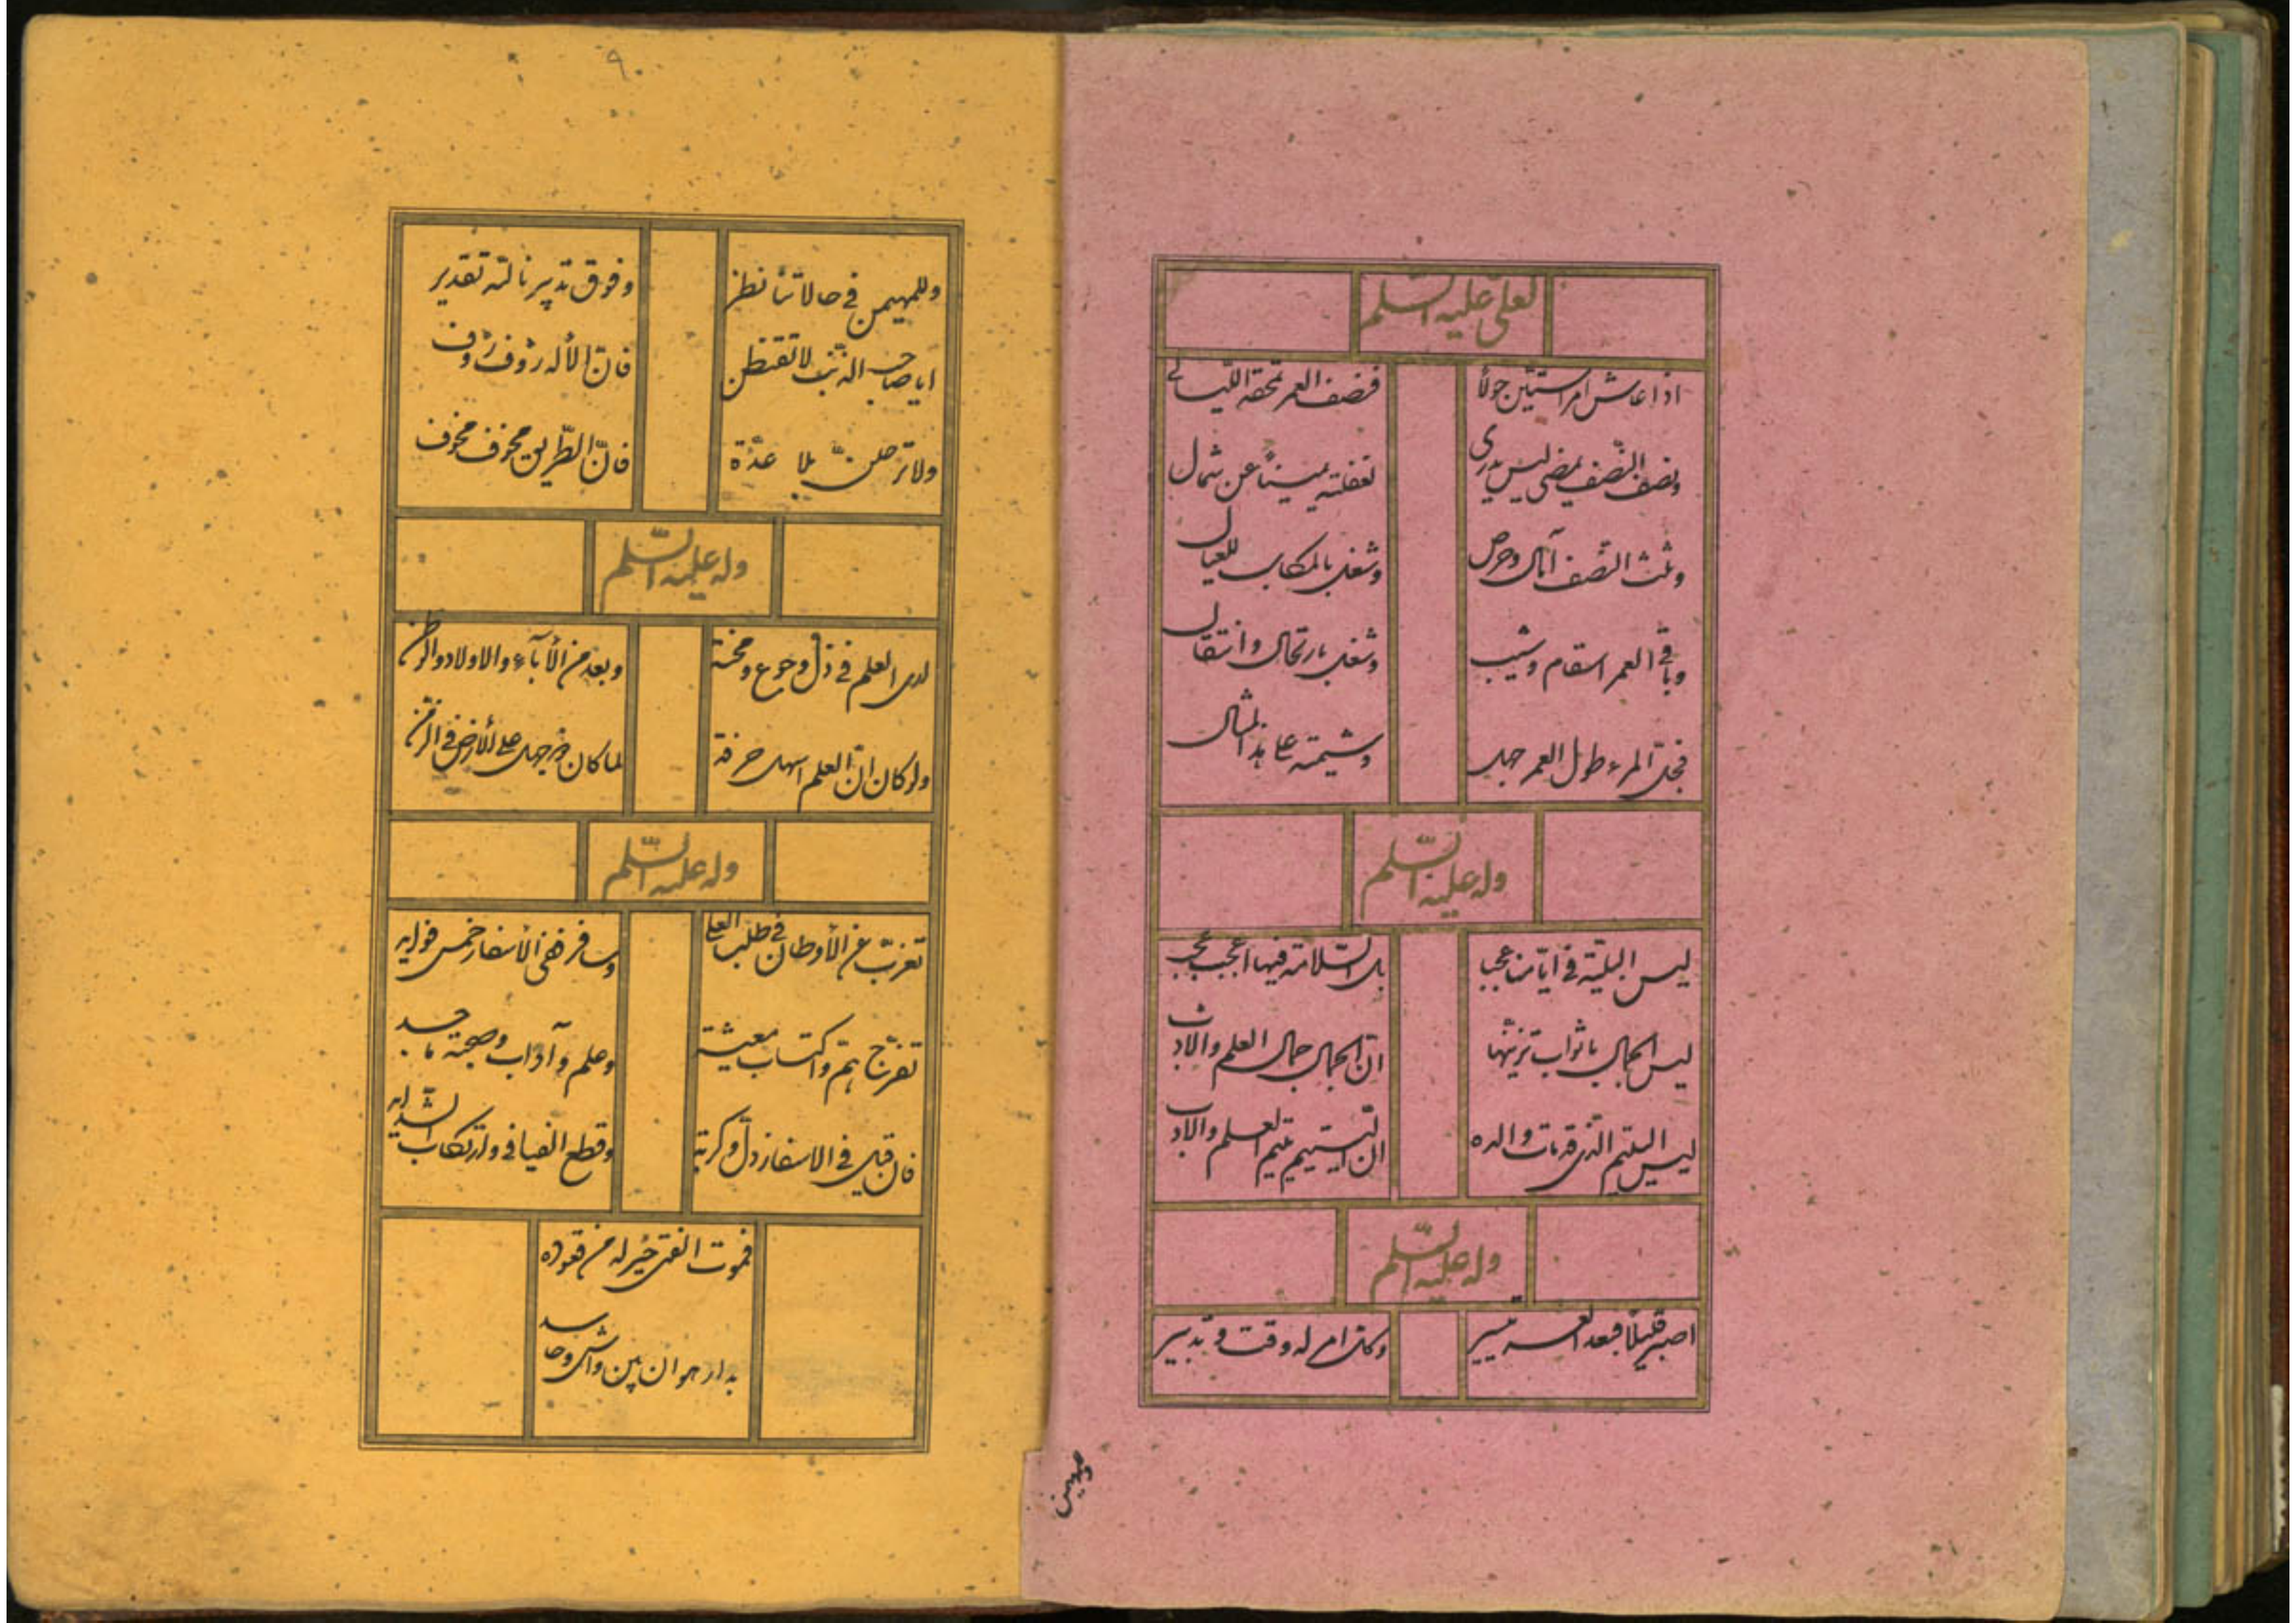 لعلی علیه السلم
اذا عاش امرا ستین حولا فنصف العمر تمحقه اللیالی
ونصف النصف یمضی لیس یدری لغفلته یمینا عن شمال
وثلث النصف آمال وحرص وشغل بالمکاسب للعیال
وباقی العمر اسقام وشیب وشغل بارتحال وانتقال
فحب المرء طول العمر جهل وشیمته علی هذا المثال
وله علیه السلم
لیس البلیة فی ایامنا عجبا بل السلامة فیها اعجب عجب
لیس الجمال باثواب تزینها ان الجمال جمال العلم والادب
لیس الیتیم الذی قد مات والده ان الیتیم یتیم العلم والادب
وله علیه السلم
اصبر قلیلا فبعد العسر تیسیر وکل امر له وقت وتدبیر
وللمهیمن
۹۰
وللمهیمن فی حالاتنا نظر وفوق تدبیرنا لله تقدیر
ایا صاحب الذنب لا تقنطن فان الأله رؤف رؤف
ولا ترحلن بلا عدة فان الطریق مخوف مخوف
وله علیه السلم
لدی العلم فی ذل وجوع ومحنة وبعد من الأباء والاولاد والوطن
ولو کان ان العلم اسهل حرفة لما کان من جهل علی الأرض فی الزمن
وله علیه السلم
تغرب عن الأوطان فی طلب العلی وسافر ففی الأسفار خمس فواید
تفرج هم واکتساب معیشة وعلم وآداب وصحبة ماجد
فان قیل فی الاسفار ذل وکربة وقطع الفیافی وارتکاب الشداید
فموت الفتی خیر له من قعوده
بدار هوان بین واش وحاسد